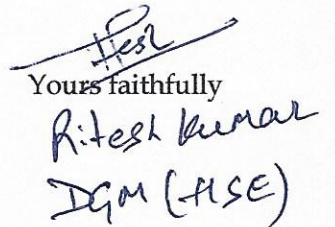 Yours faithfully
Ritesh Kumar
DGM (HSE)